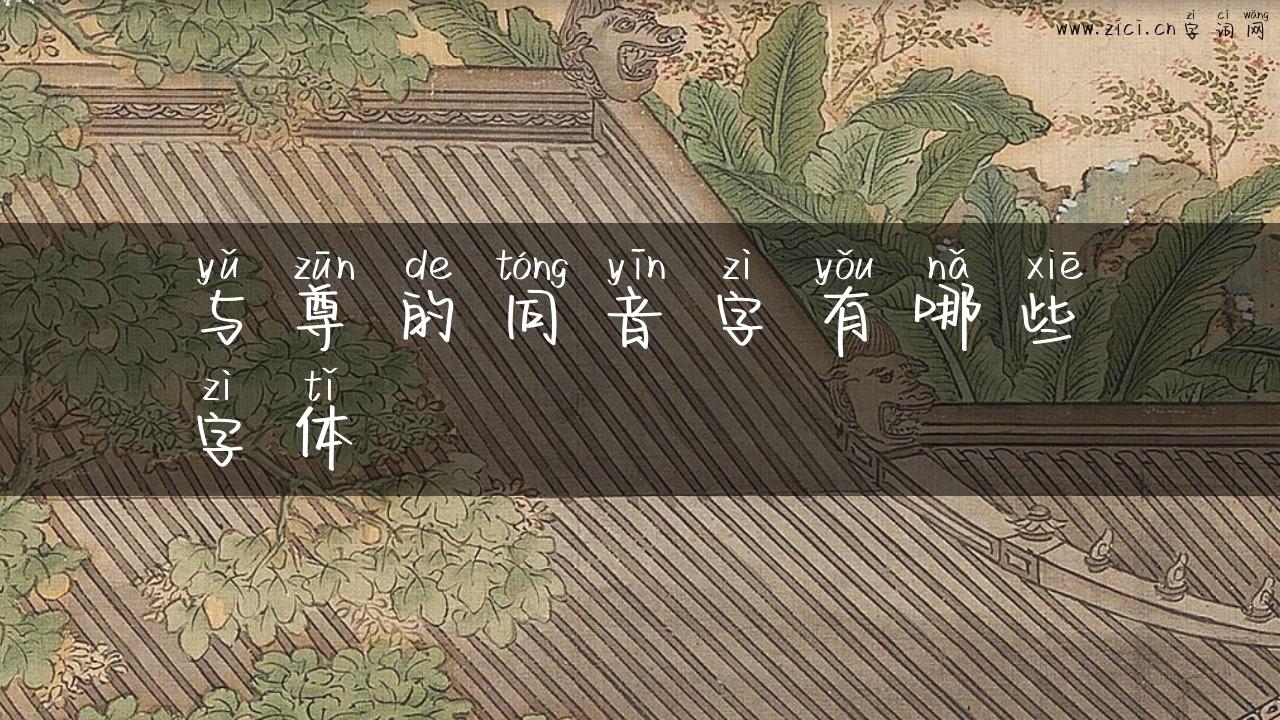 zì cí wǎng
www.zici.cn 字词网
yǔ zūn de tóng yīn zì yǒu nǎ xiē
与尊的同音字有哪些
zì tǐ
字体